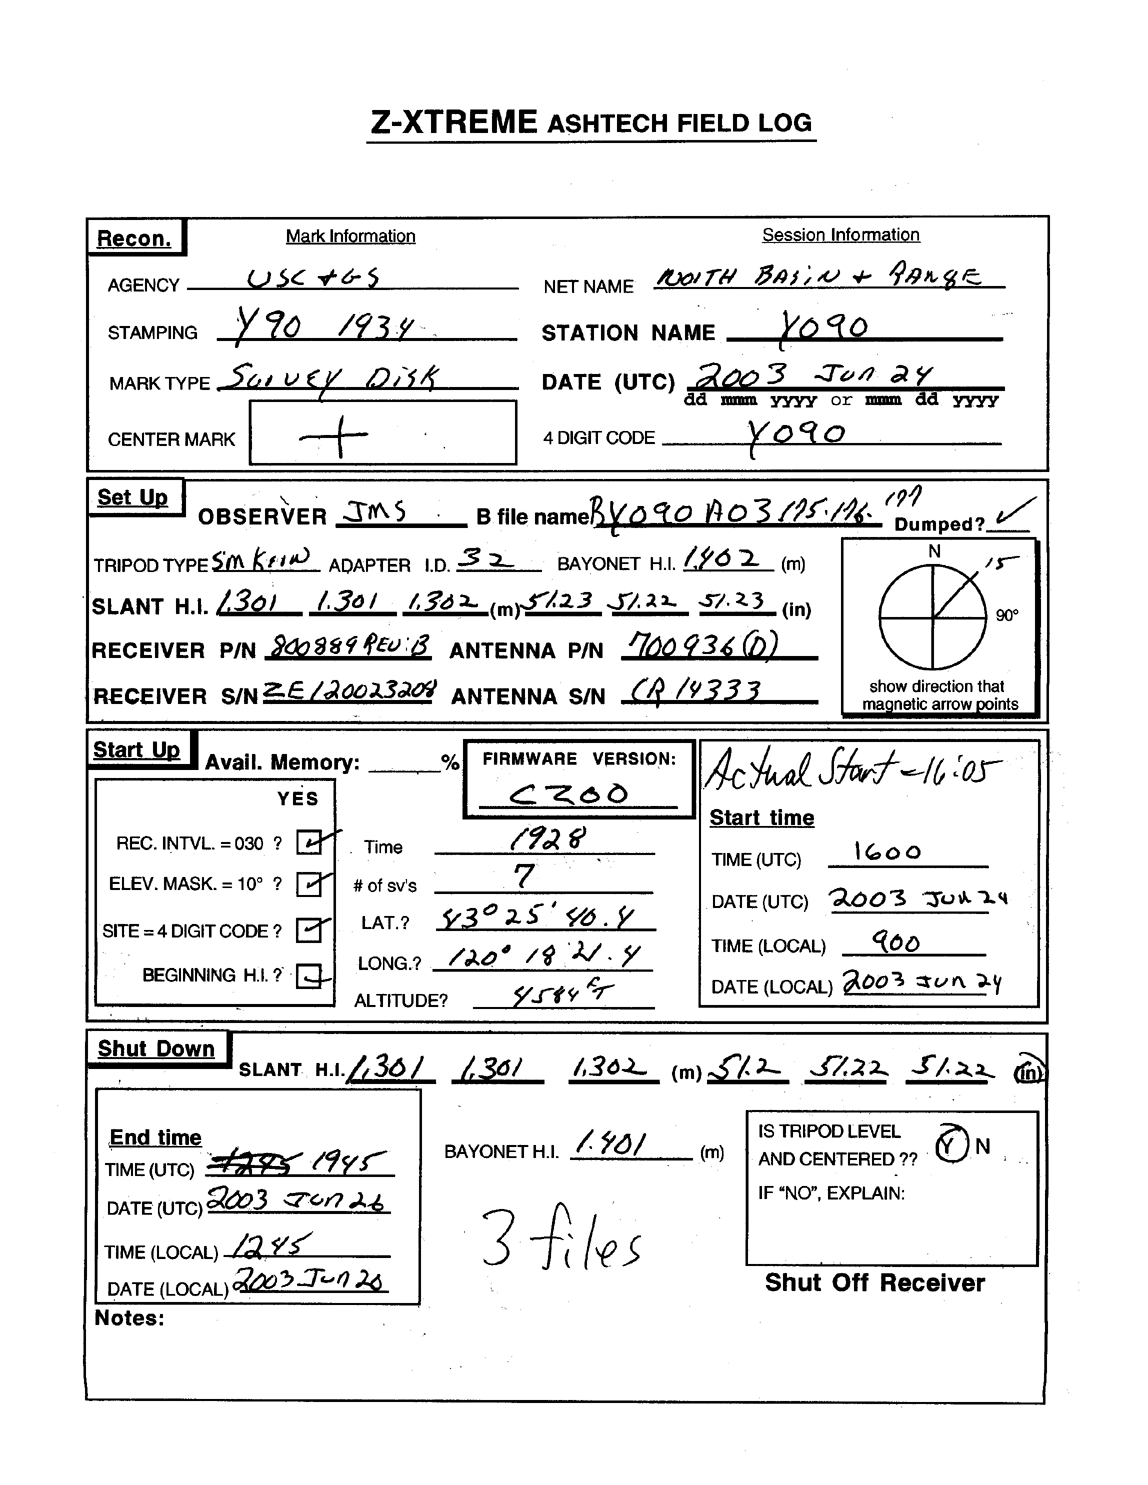 Z-XTREME ASHTECH FIELD LOG
Recon. Mark Information Session Information
AGENCY USC+GS NET NAME NORTH BASIN + RANGE
STAMPING Y90 1934 STATION NAME Y090
MARK TYPE SURVEY DISK DATE (UTC) 2003 Jun 24
dd mmm yyyy or mmm dd yyyy
CENTER MARK + 4 DIGIT CODE Y090
Set Up OBSERVER JMS B file name BY090 A03 175.176.177 Dumped? ✓
TRIPOD TYPE ADAPTER I.D. 32 BAYONET H.I. 1.402 (m)
SLANT H.I. 1.301 1.301 1.302 (m) 51.23 51.22 51.23 (in)
RECEIVER P/N 800889 REV:B ANTENNA P/N 700936(D)
RECEIVER S/N ZE120023208 ANTENNA S/N CR14333
N 15
90°
show direction that
magnetic arrow points
Start Up Avail. Memory: % FIRMWARE VERSION:
CZ00
YES
REC. INTVL. = 030 ? ✓
ELEV. MASK. = 10° ? ✓
SITE = 4 DIGIT CODE ? ✓
BEGINNING H.I. ? ✓
Time 1928
# of sv's 7
LAT.? 43° 25' 40.4
LONG.? 120° 18 21.4
ALTITUDE? 4584 FT
Actual Start - 16:05
Start time
TIME (UTC) 1600
DATE (UTC) 2003 Jun 24
TIME (LOCAL) 900
DATE (LOCAL) 2003 Jun 24
Shut Down SLANT H.I. 1.301 1.301 1.302 (m) 51.2 51.22 51.22 (in)
End time
TIME (UTC) 1245 1945
DATE (UTC) 2003 Jun 26
TIME (LOCAL) 1245
DATE (LOCAL) 2003 Jun 26
BAYONET H.I. 1.401 (m)
3 files
IS TRIPOD LEVEL
AND CENTERED ?? Y N
IF "NO", EXPLAIN:
Shut Off Receiver
Notes: